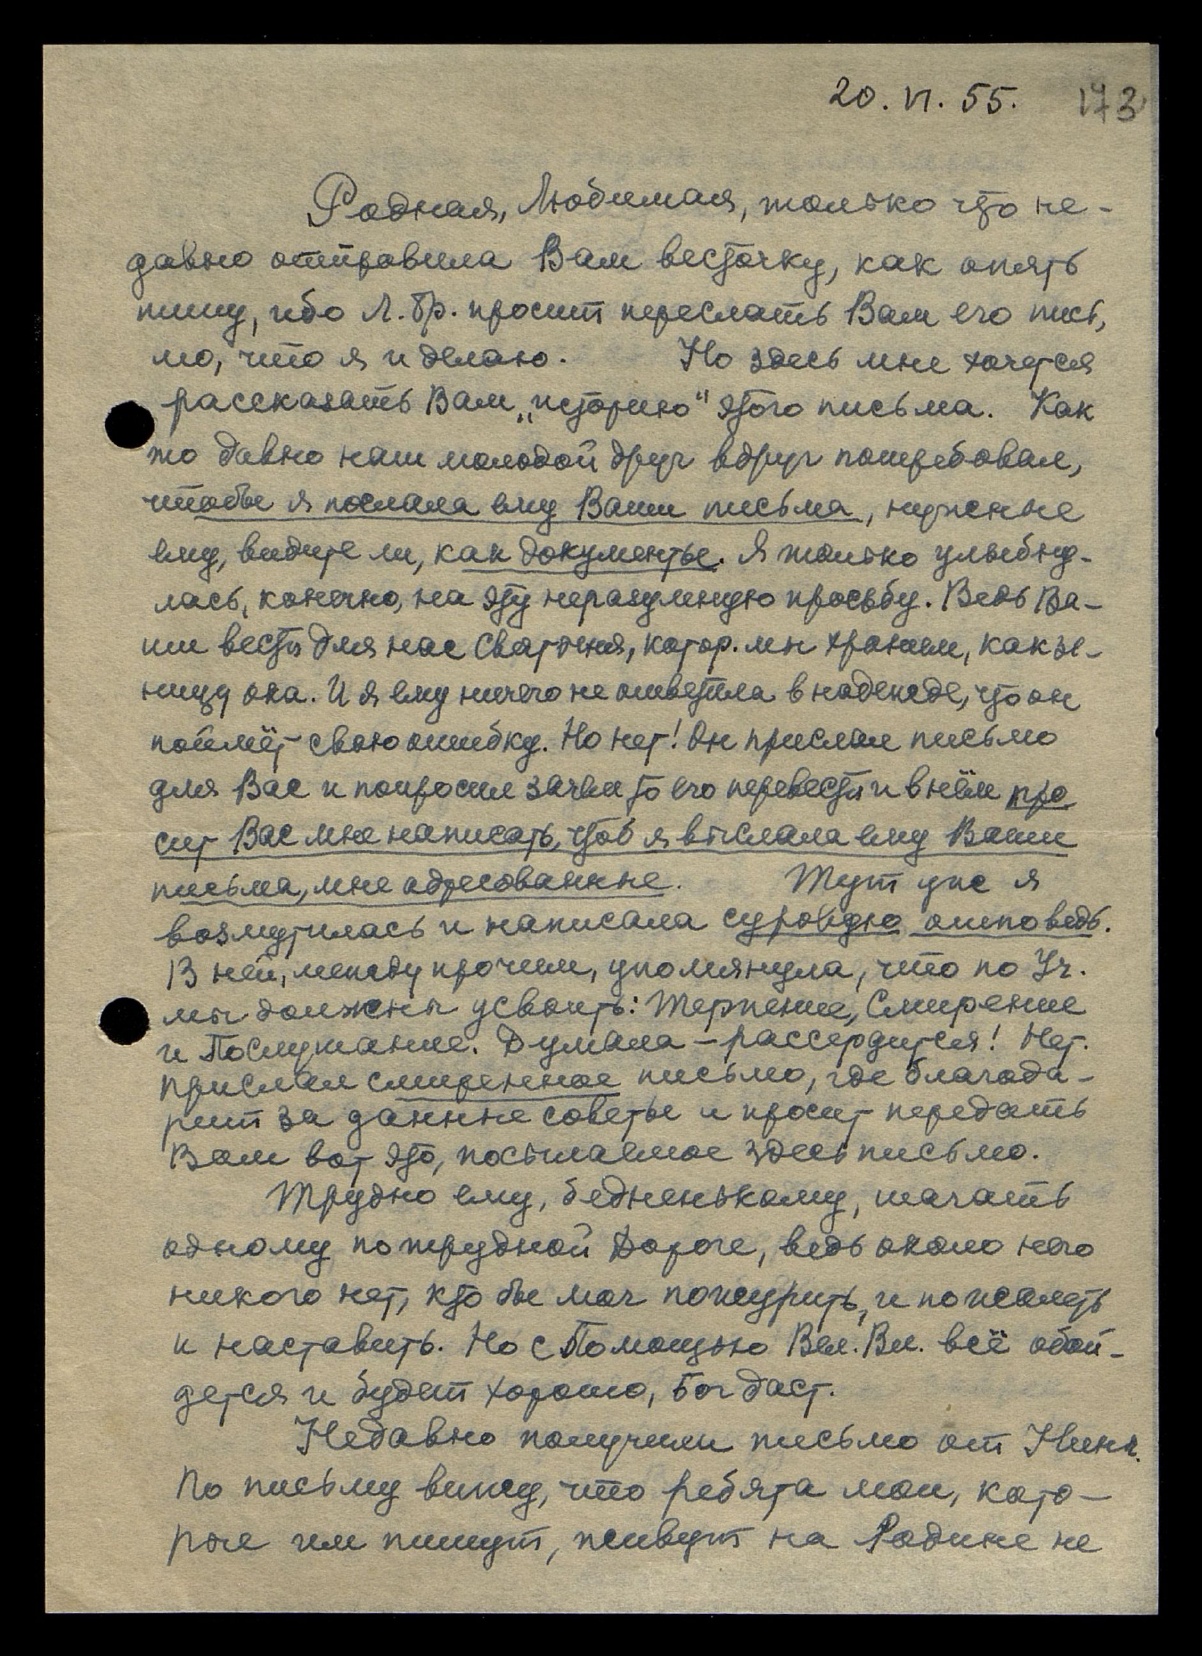 20. VI. 55. 173
Родная, Любимая, только что не-
давно отправила Вам весточку, как опять
пишу, ибо Л. Бр. просит переслать Вам его пись,
мо, что я и делаю. Но здесь мне хочется
рассказать Вам „историю" этого письма. Как
то давно наш молодой друг вдруг потребовал,
чтобы я послала ему Ваши письма, нужные
ему, видите ли, как документы. Я только улыбну-
лась, конечно, на эту неразумную просьбу. Ведь Ва-
ши вести для нас Святыня, котор. мы храним, как зе-
ницу ока. И я ему ничего не ответила в надежде, что он
поймёт свою ошибку. Но нет! Он прислал письмо
для Вас и попросил зачем то его перевести и в нём про
сит Вас мне написать, чтоб я выслала ему Ваши
письма, мне адресованные. Тут уже я
возмутилась и написала суровую отповедь.
В ней, между прочим, упомянула, что по Уч.
мы должны усвоить: Терпение, Смирение
и Послушание. Думала – рассердится! Нет.
Прислал смиренное письмо, где благода-
рит за данные советы и просит передать
Вам вот это, посылаемое здесь письмо.
Трудно ему, бедненькому, шагать
одному по трудной Дороге, ведь около него
никого нет, кто бы мог пожурить, и пожалеть
и наставить. Но с Помощью Вел. Вл. всё обой-
дется и будет хорошо, Бог даст.
Недавно получили письмо от Нины.
По письму вижу, что ребята мои, кото-
рые им пишут, живут на Родине не